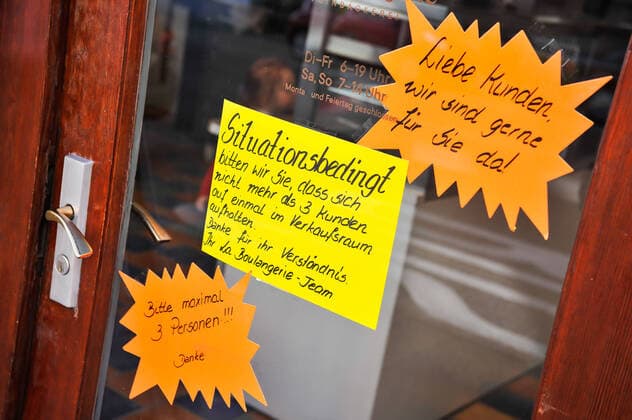 Di-Fr 6-19 Uhr
Sa, So 7-14 Uhr
Montag und Feiertag geschlossen
Liebe Kunden,
wir sind gerne
für Sie da!
Situationsbedingt
bitten wir Sie, dass sich
nicht mehr als 3 Kunden
auf einmal im Verkaufsraum
aufhalten.
Danke für ihr Verständnis.
Ihr La Boulangerie-Team
Bitte maximal
3 Personen!!!
Danke